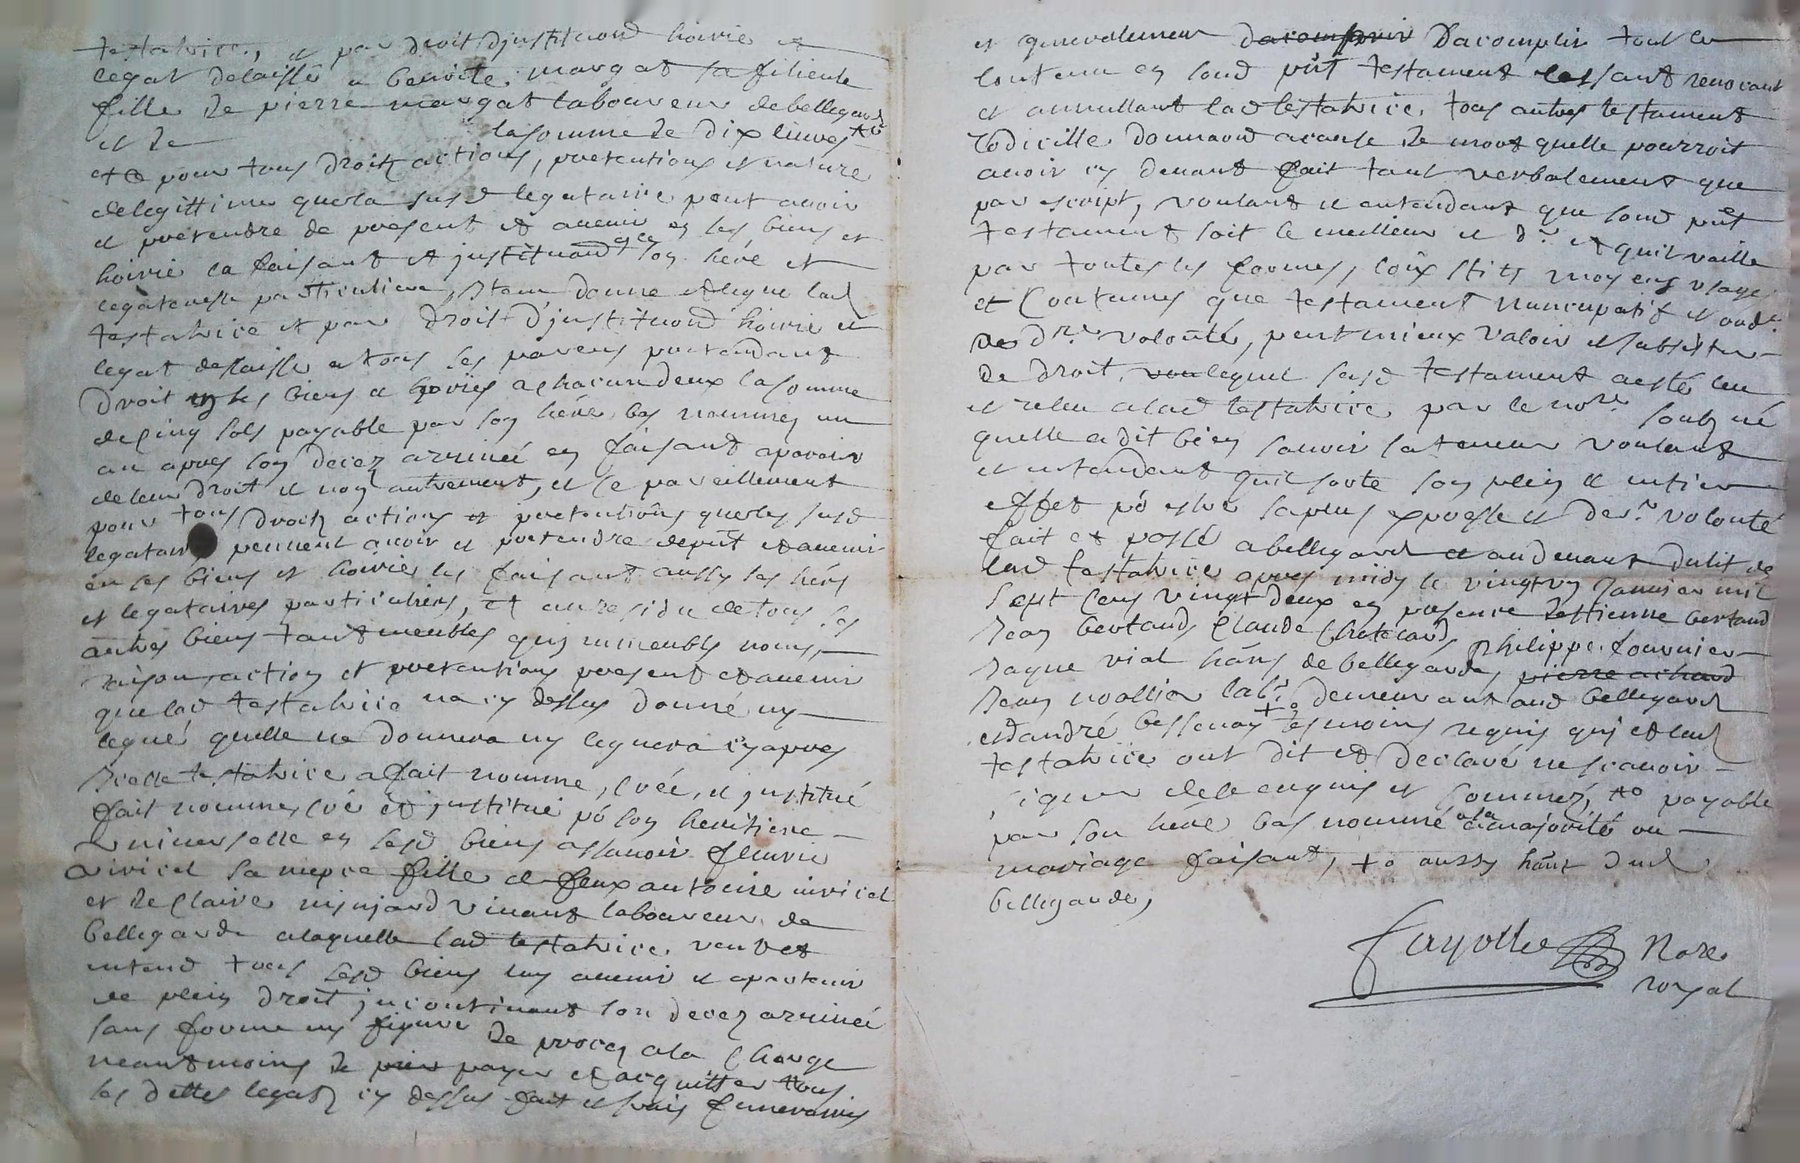 testatrice, et par droit d'justituond hoirie et
legat delaissé a benoite margat sa filieule
fille de pierre margat laboureur de bellegarde
et de la somme de dix livres
et ce pour tous droitz actions, pretentions et nature
de legittime que la susd legataire peut avoir
et pretendre de present et avenir en ses biens et
hoirie la faisant et justituand en ce son hére et
legateresse particuliere, Item donne et legue lad
testatrice et par droit d'justituond hoirie et
legat delaisse a tous ses parens pretendant
droit en ses biens et hoiries a chacun deux la somme
de cinq sols payable par son hére bas nommez un
an apres son decez arrivée en faisant aparoir
de leur droit et non autrement, et ce pareillement
pour tous droitz actions et pretentions que les susd
legataires peuvent avoir et pretendre de pñt et avenir
en ses biens et hoirie les faisant aussy ses hérs
et legataires particuliers, Et au residu de tous ses
autres biens tant meubles qui immeubles noms,
raisons action et pretentions present et avenir
que lad testatrice na cy dessus donne ny
legué quelle ne donnera ny leguera cy apres
Icelle testatrice a fait nomme, creé, et justitué
fait nomme, creé et justitué pó son heritiere
universelle en sesd biens assavoir fleurie
viricel sa niepce fille de feux antoine viricel
et de Claire vivant laboureur de
bellegarde a laquelle lad testatrice veut et
entend tous sesd biens luy avenir et apartenir
de plein droit jncontinant son decez arrivée
sans forme ny figure de procez a la Charge
neantmoins de payer et acquitter tous
ses dettes legatz cy dessus fait et frais funeraires
et generalement dacomplir Dacomplir tout le
Contenu en sond pñt testament cassant revocant
et annullant lad testatrice, tous autres testament
Codicille donnaond a cause de mort quelle pourroit
avoir cy devant fait tant verbalement que
par script, voulant et entendant que sond pñt
testament soit le meilleur et dr et quil vaille
par toutes les formes, loix stils moyens usages
et Coutumes que testament nuncupatif et ordre
de dre volonté, peut mieux valoir et subsister
de droit, lequel susd testament a esté leu
et releu a lad testatrice par le nore soubzné
quelle a dit bien scavoir sa teneur voulant
et entendent quil sorte son plein et entier
effet pó estre sa plus expresse et dere volonté
fait et passé a bellegarde et au devant du lit de
lad testatrice apres midy le vingt un Janvier mil
sept Cens vingt deux en presence destienne bertaud
Jean bertaud, Claude Chatelard, philippe fournier
Jaque vial hãns de bellegarde, pierre achard
Jean labr demeurant aud bellegarde
et andré bessenay +o tesmoins requis qui et lad
testatrice ont dit et declaré ne scavoir
signer de ce enquis et sommez, +o payable
par son hére bas nommé a sa majorité ou
mariage faisant, +o aussy hãnt dud
bellegarde,
fayolle Nore
royal